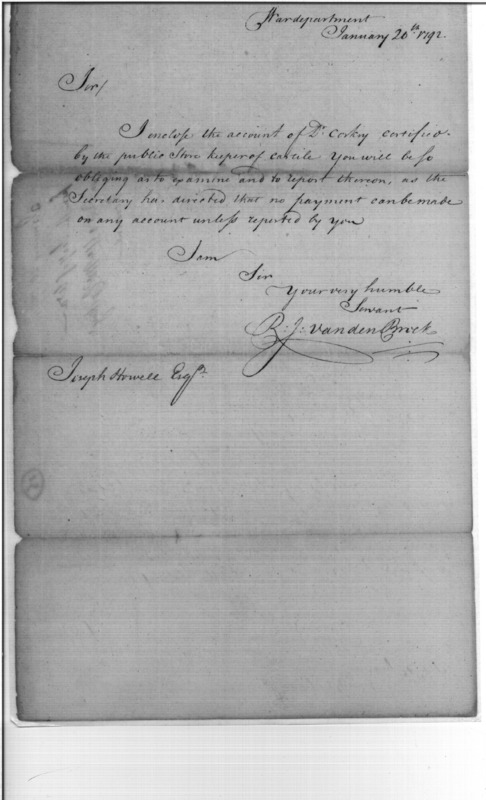 War department
January 20th 1792.
Sir/
I enclose the account of Dr. Corkey certified
by the public Store keeper of carlile You will be so
obliging as to examine and to report thereon, as the
Secretary has directed that no payment can be made
on any account unless reported by you
I am
Sir
Your very humble
Servant
B: J: vanden Brock
Joseph Howell Esqr.